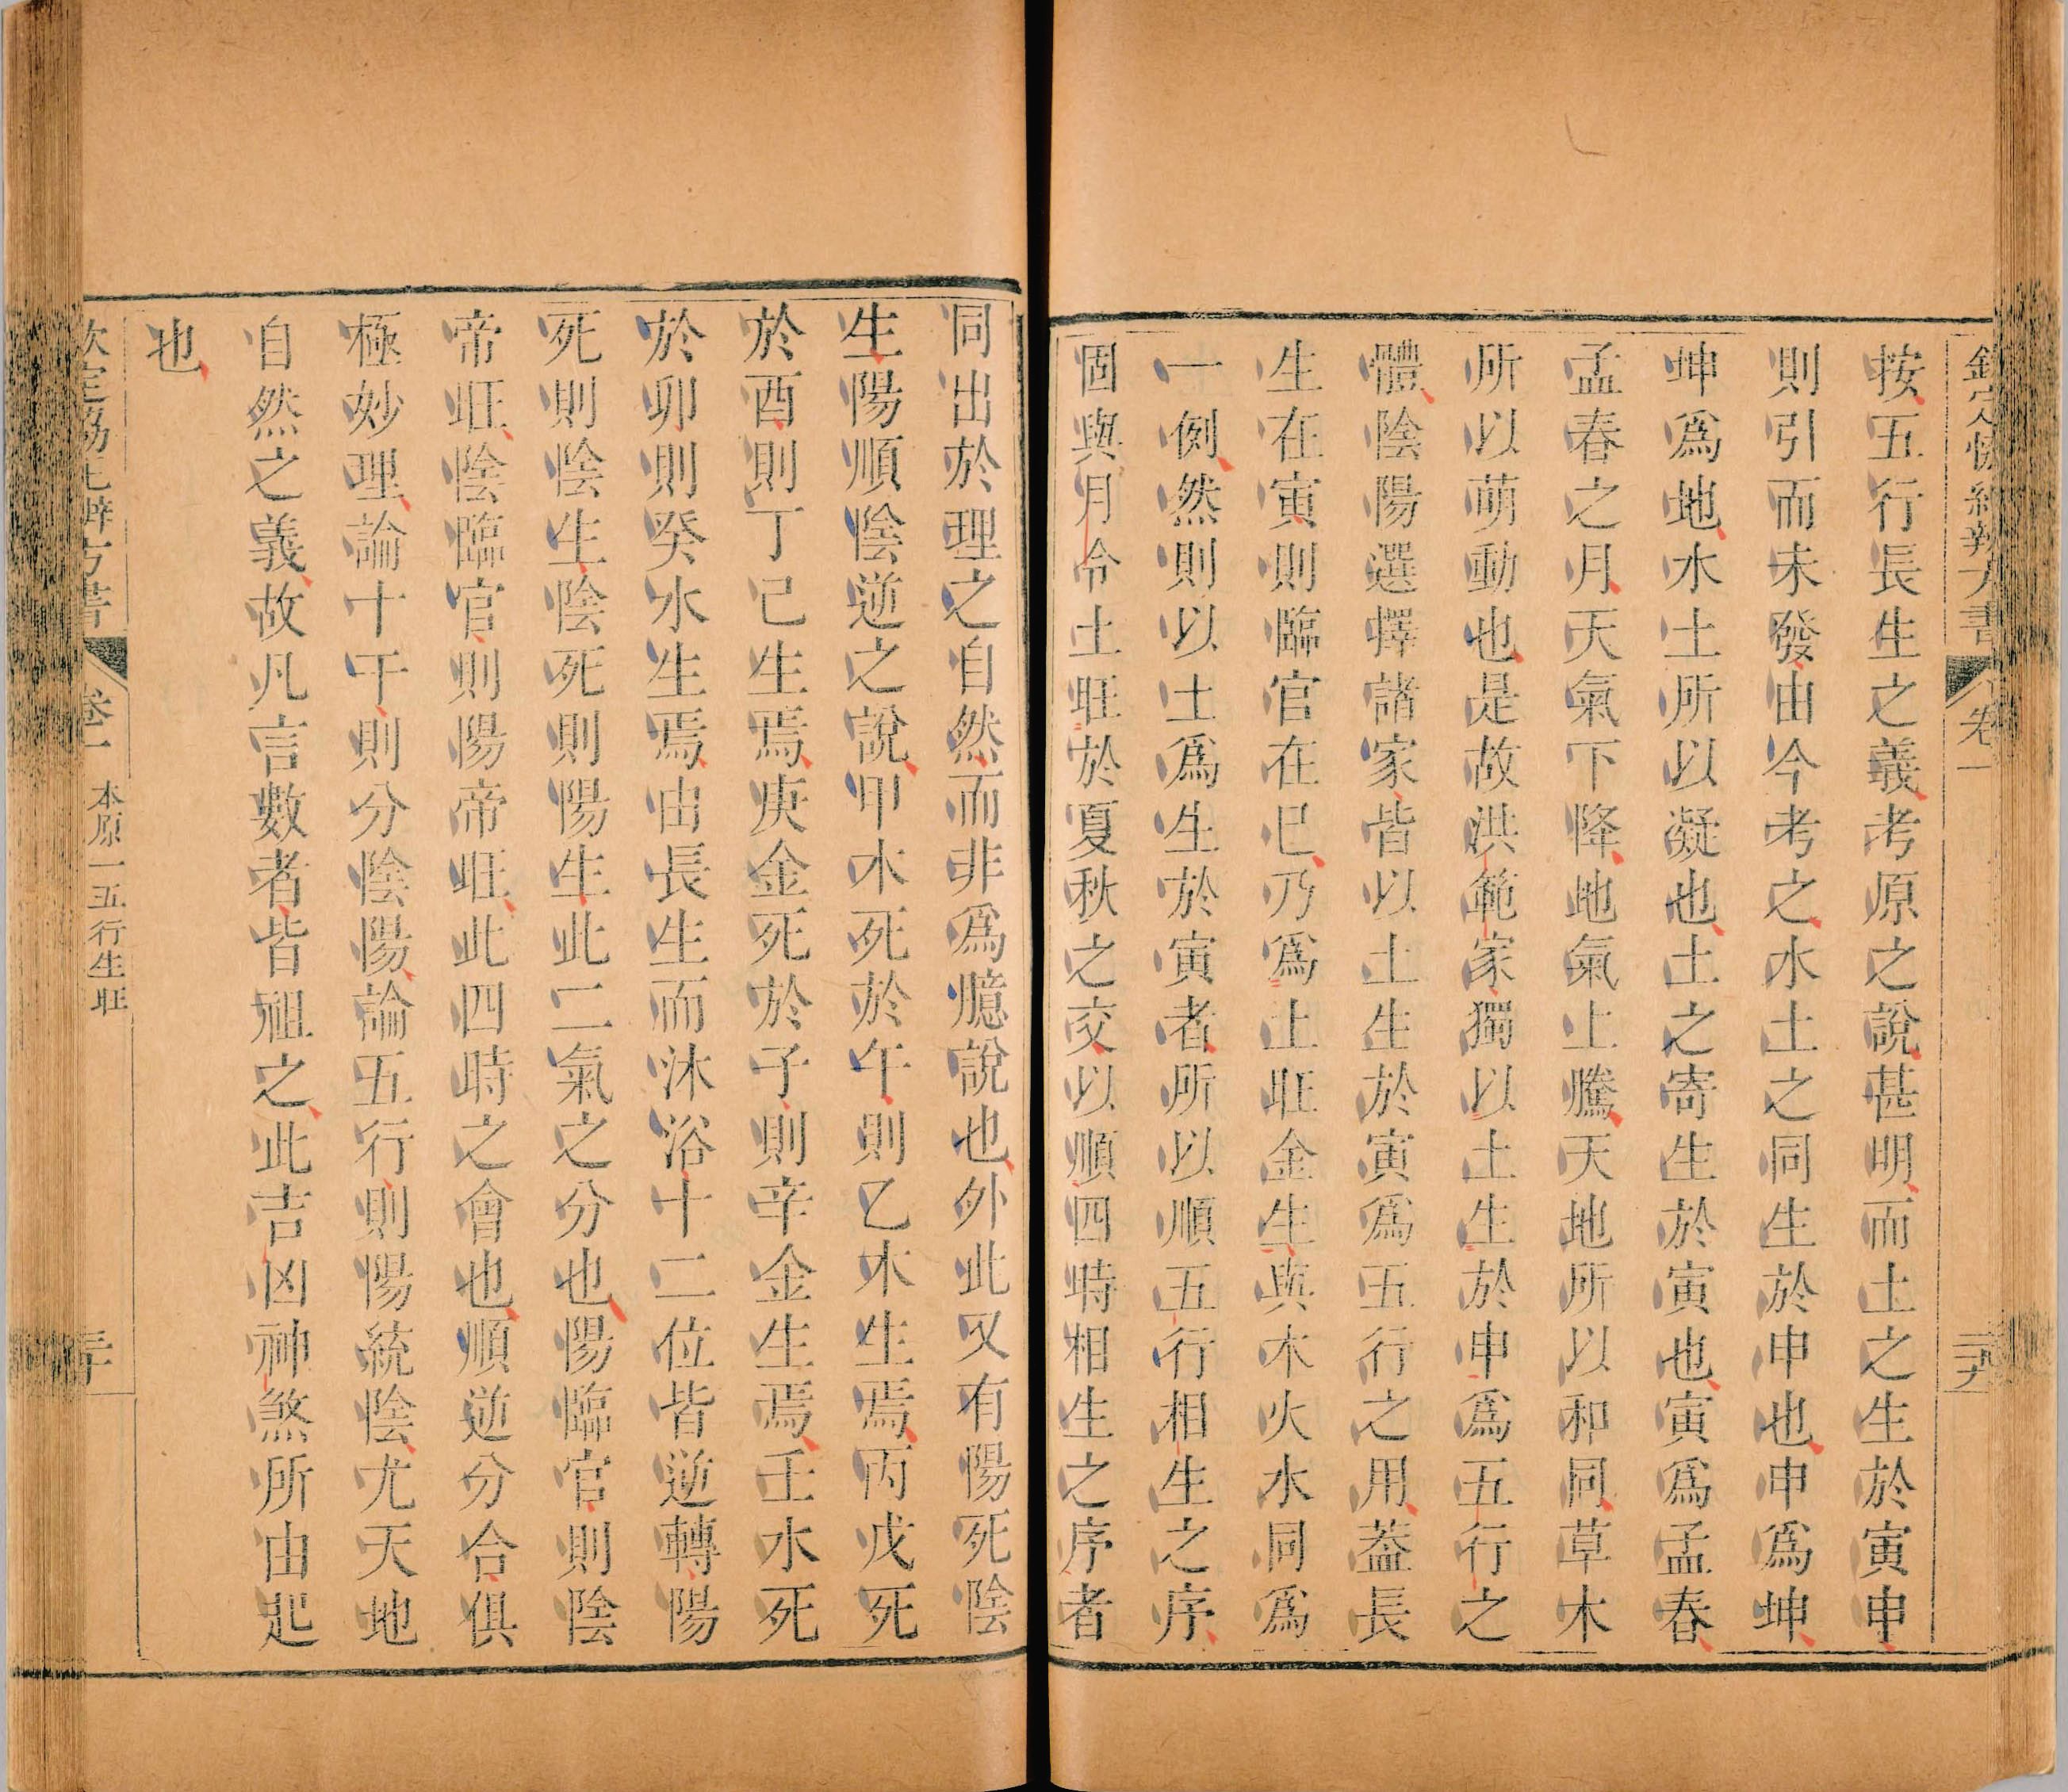 欽定協紀辨方書 卷一 二十九
按五行長生之義考原之說甚明而土之生於寅申
則引而未發由今考之水土之同生於申也申爲坤
坤爲地水土所以凝也土之寄生於寅也寅爲孟春
孟春之月天氣下降地氣上騰天地所以和同草木
所以萌動也是故洪範家獨以土生於申爲五行之
體陰陽選擇諸家皆以土生於寅爲五行之用葢長
生在寅則臨官在巳乃爲土旺金生與木火水同爲
一例然則以土爲生於寅者所以順五行相生之序
固與月令土旺於夏秋之交以順四時相生之序者
同出於理之自然而非爲臆說也外此又有陽死陰
生陽順陰逆之說甲木死於午則乙木生焉丙戊死
於酉則丁己生焉庚金死於子則辛金生焉壬水死
於卯則癸水生焉由長生而沐浴十二位皆逆轉陽
死則陰生陰死則陽生此二氣之分也陽臨官則陰
帝旺陰臨官則陽帝旺此四時之會也順逆分合俱
極妙理論十干則分陰陽論五行則陽統陰尤天地
自然之義故凡言數者皆祖之此吉凶神煞所由起
也
欽定協紀辨方書 卷一 本原一五行生旺 三十